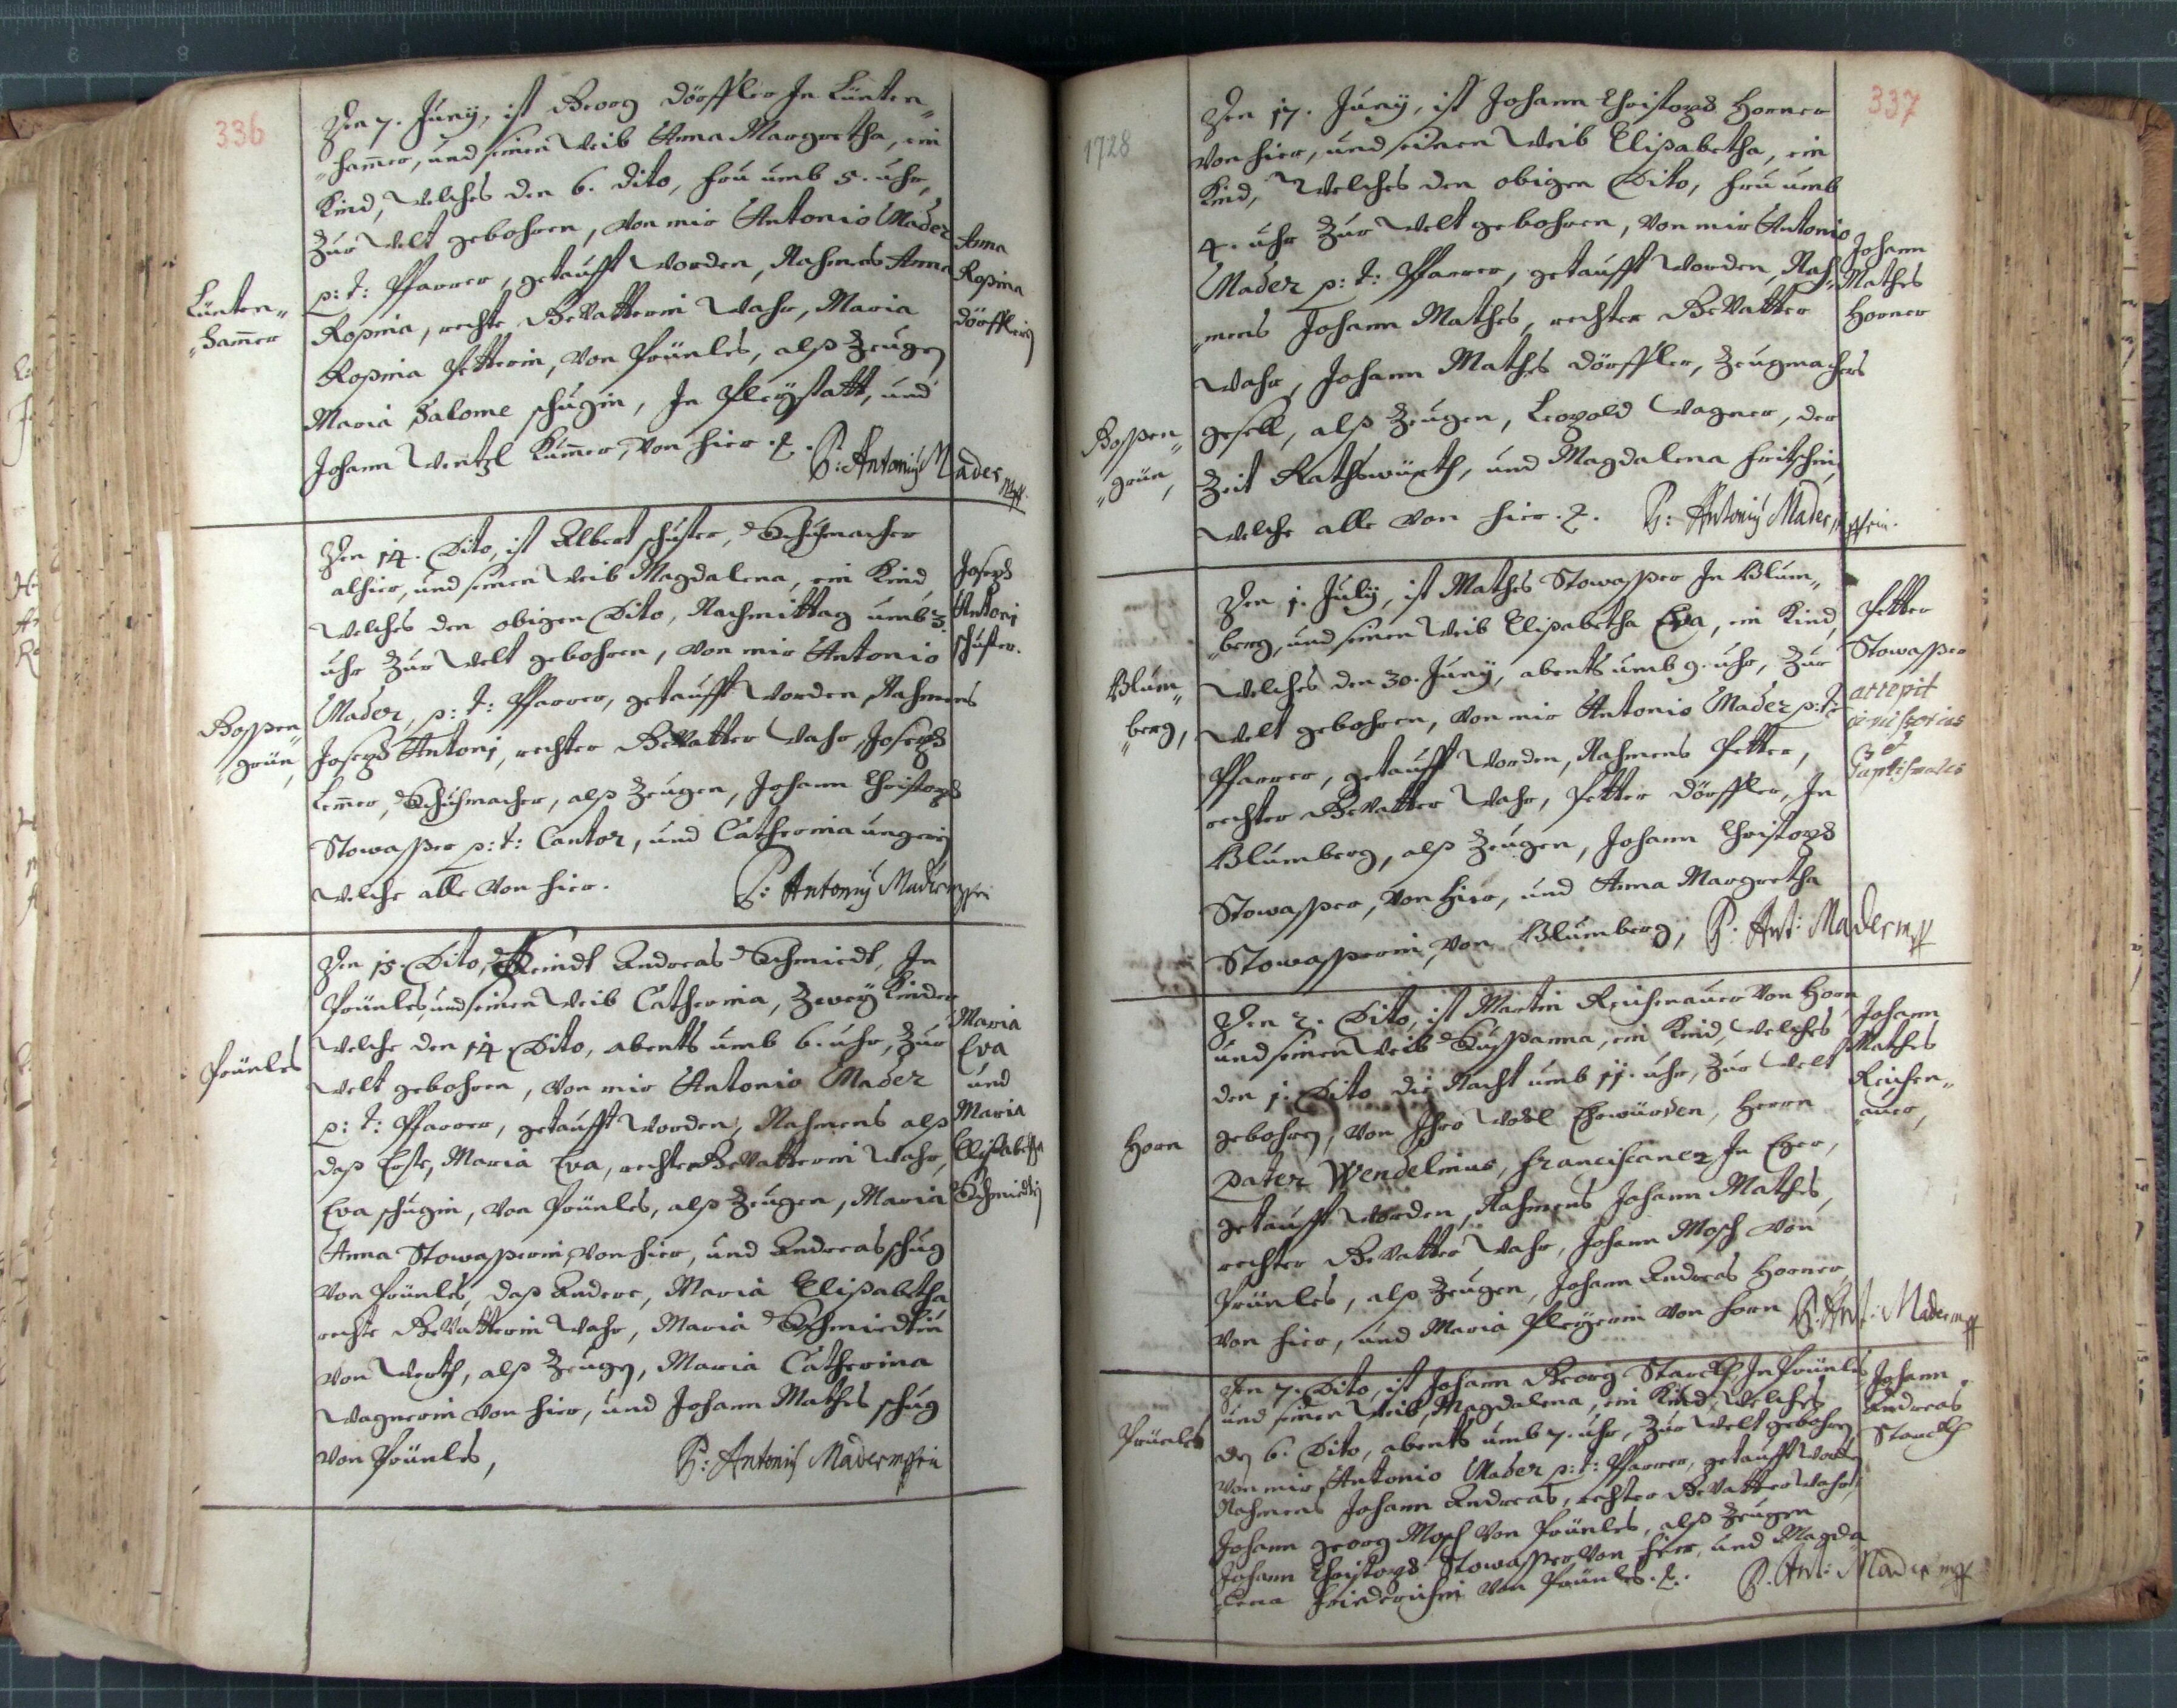 336
Den 7. Juny, ist Georg Dörffler In Lünten„
„ham̄er, und seinen Weib Anna Margretha, ein
Kind, welches den 6. dito, fru umb 5. uhr,
Zur Welt gebohren, von mir Antonio Mader
p: t: Pfarrer, getaufft worden, Nahmens Anna
Rosina, rechte Gevatterin Wahr, Maria
Rosina Petterin, von Prünles, alß Zeugen
Maria Salome Schugin, In Pleystatt, und
Johann Wentzl Kum̄er, von hier.
P: Antoniȝ Mader mp
Lünten„
„ham̄er
Anna
Rosina
Dörfflerin
Den 14. Dito, ist Albert Schuster, Schuhmacher
alhier, und seinen Weib Magdalena, ein Kind
welches den obigen Dito, Nachmittag umb 3.
uhr Zur Welt gebohren, von mir Antonio
Mader, p: t: Pfarrer, getaufft worden, Nahmens
Joseph Antonj, rechter Gevatter Wahr, Joseph
Lem̄er, Schuhmacher, alß Zeugen, Johann Christoph
Stowasser p: t: Cantor, und Catherina Ungerin
welche alle von hier.
P: Antoniȝ Mader mp
Gossen„
„grün,
Joseph
Antonj
Schuster.
Den 15. Dito, seindt Andreas Schmiedt, In
Prünles, und seinen Weib Catherina, Zwey Kinder
welche den 14. Dito, abents umb 6. uhr, Zur
Welt gebohren, von mir Antonio Mader
p: t: Pfarrer, getaufft worden, Nahmens alß
daß Erste, Maria Eva, rechte Gevatterin Wahr,
Eva Schugin, von Prünles, alß Zeugen, Maria
Anna Stowasserin, von hier, und Andreas Schug
von Prünles, daß Andere, Maria Elisabetha
rechte Gevatterin Wahr, Maria Schmiedtin
von Werth, alß Zeugen, Maria Catherina
Wagnerin von hier, und Johann Mathes Schug
von Prünles,
P: Antoniȝ Mader mp
Prünles
Maria
Eva
und
Maria
Elisabetha
Schmiedtin
337
1728
Den 17. Juny, ist Johann Christoph Horner
von hier, und seinen Weib Elisabetha, ein
Kind, welches den obigen Dito, fru umb
4. uhr Zur Welt gebohren, von mir Antonio
Mader p: t: Pfarrer, getaufft worden, Nah„
„mens Johann Mathes, rechter Gevatter
Wahr, Johann Mathes Dörffler, Zeugmachers
gesell, alß Zeugen, Leopold Wagner, der
Zeit Rathswürth, und Magdalena Fritschin,
welche alle von hier.
P: Antoniȝ Mader mp
Gossen„
„grün,
Johann
Mathes
Horner
Den 1. July, ist Mathes Stowasser In Blum„
„berg, und seinen Weib Elisabetha Eva, ein Kind,
welches den 30. Juny, abents umb 9. uhr, Zur
Welt gebohren, von mir Antonio Mader p: t:
Pfarrer, getaufft worden, Nahmens Petter,
rechter Gevatter Wahr, Petter Dörffler, In
Blumberg, alß Zeugen, Johann Christoph
Stowasser, von hier, und Anna Margretha
Stowasserin, von Blumberg,
P: Ant: Mader mp
Blum„
„berg,
Petter
Stowasser
accepit
Den 2. Dito, ist Martin Reichenauer von Horn
und seinen Weib Susanna, ein Kind, welches
den 1. Dito die Nacht umb 11. uhr, Zur Welt
gebohren, von Ihro Wohl Ehrwürden, Herrn
Pater Wendelinus, Franciscaner In Eger,
getaufft worden, Nahmens Johann Mathes,
rechter Gevatter Wahr, Johann Mosch von
Prünles, alß Zeugen, Johann Andreas Horner,
von hier, und Maria Pleyerin von Horn
P: Ant: Mader mp
Horn
Johann
Mathes
Reichen„
„auer,
Den 7. Dito, ist Johann Georg Starck, In Prünles
und seinen Weib, Magdalena, ein Kind, welches
den 6. Dito, abents umb 7. uhr, Zur Welt gebohren
von mir, Antonio Mader p: t: Pfarrer, getaufft worden
Nahmens Johann Andreas, rechter Gevatter Wahr,
Johann Georg Mosch von Prünles, alß Zeugen
Johann Christoph Stowasser von hier, und Magda„
„lena Friederichin von Prünles.
P: Ant: Mader mp
Prünles
Johann
Andreas
Starck